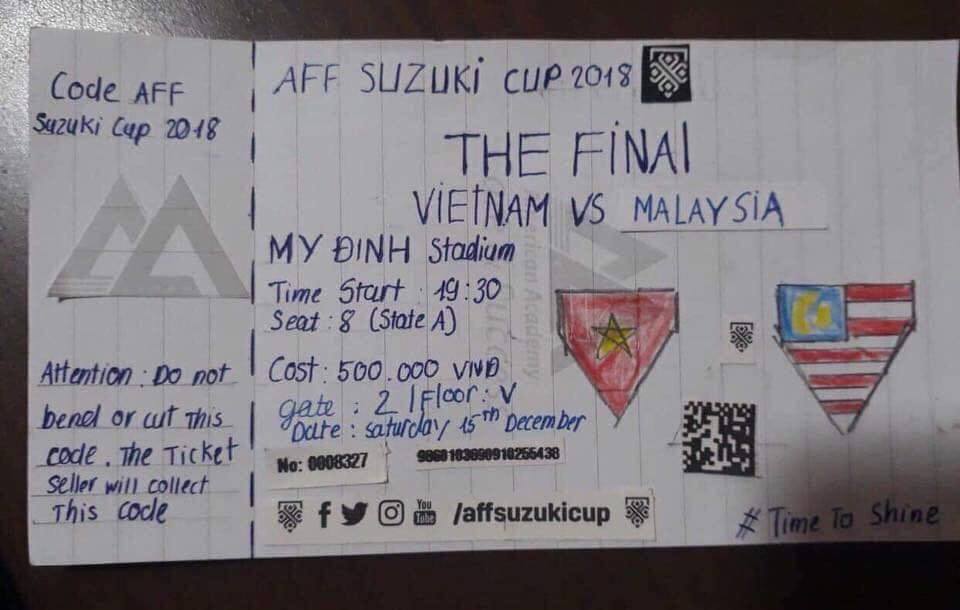 Code AFF
Suzuki Cup 2018
Attention : Do not
bend or cut This
code . The Ticket
Seller will collect
This code
AFF SUZUKi CUP 2018
THE FiNAl
ViETNAM VS MALAYSiA
MY ĐINH Stadium
Time Start : 19:30
Seat : 8 (State A)
Cost : 500.000 VNĐ
gate : 2 / Floor : V
Date : Saturday 15th December
No: 0008327
9860103690910255438
You Tube /affsuzukicup
# Time To Shine